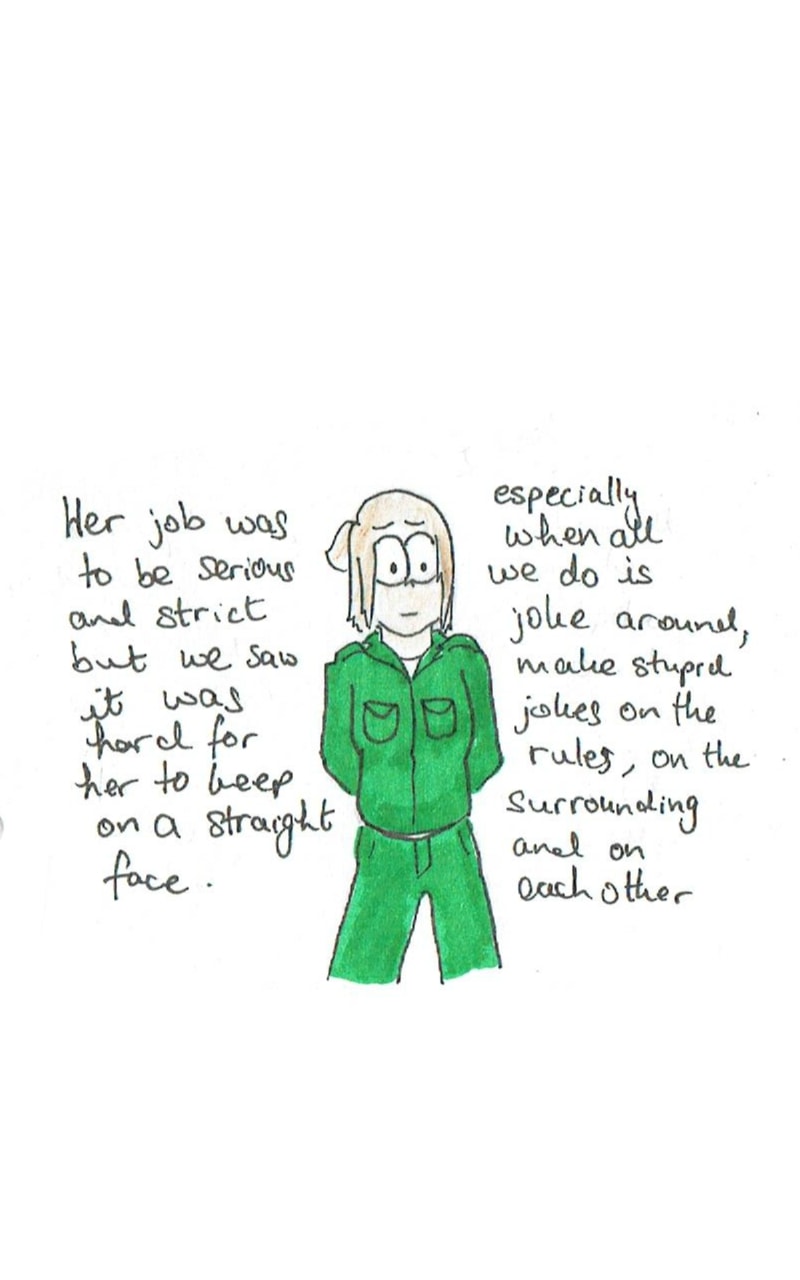 Her job was
to be serious
and strict
but we saw
it was
hard for
her to keep
on a straight
face.
especially
when all
we do is
joke around,
make stupid
jokes on the
rules, on the
surrounding
and on
each other